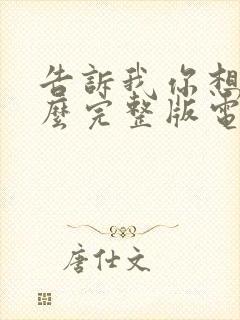 告訴我你想
麼完整版電
唐仕文